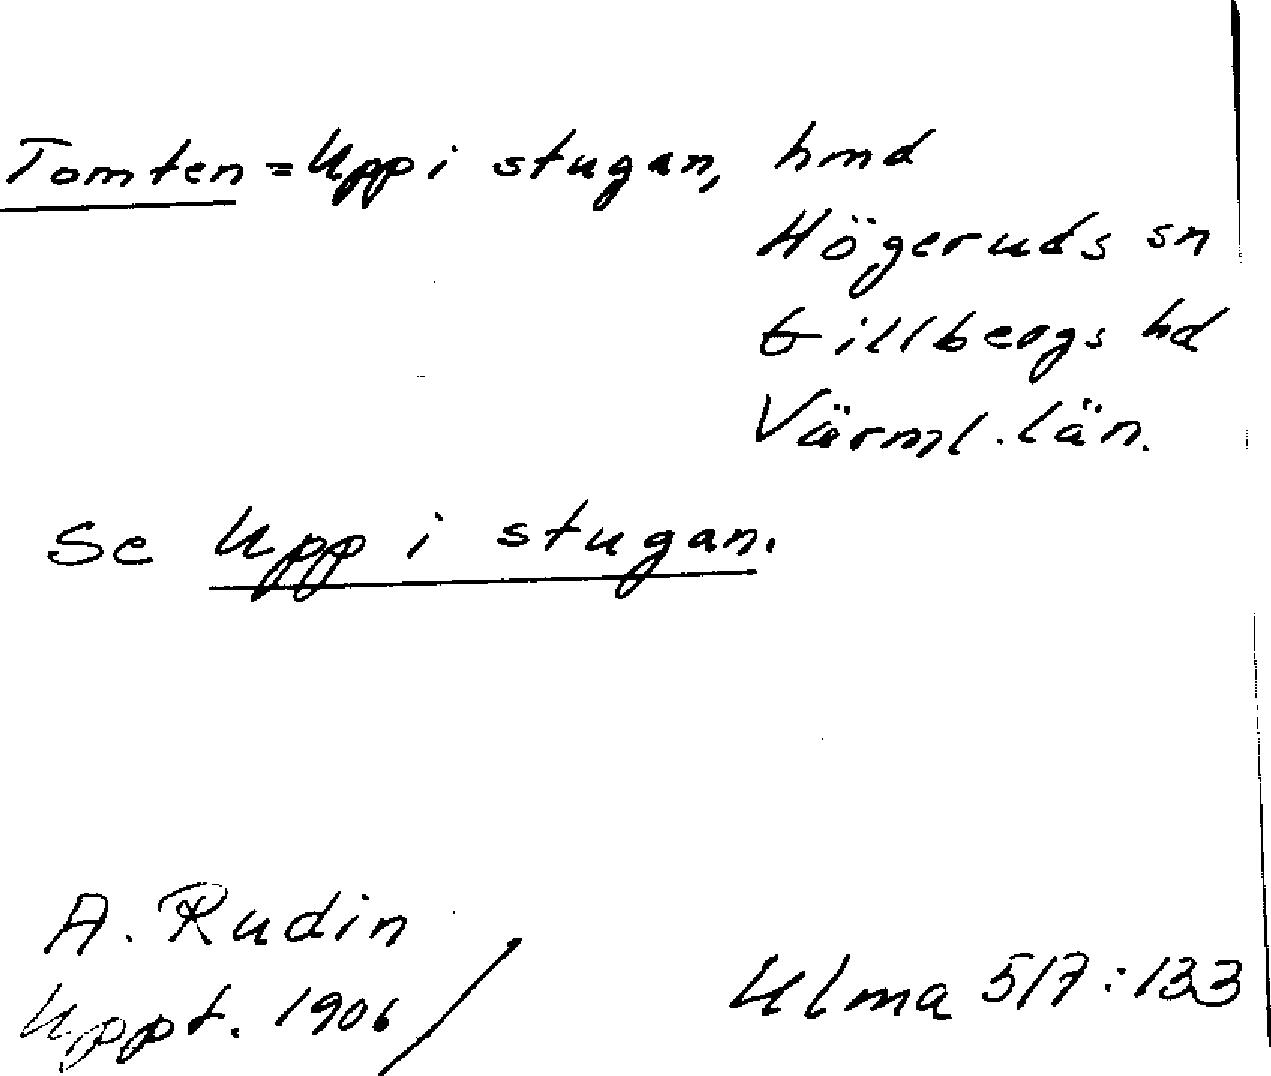 Tomten = Upp i stugan, hmd
Högeruds sn
Gillbergs hd
Värml. län.
Se Upp i stugan.
A. Rudin
Uppt. 1906 /
Ulma 517:133